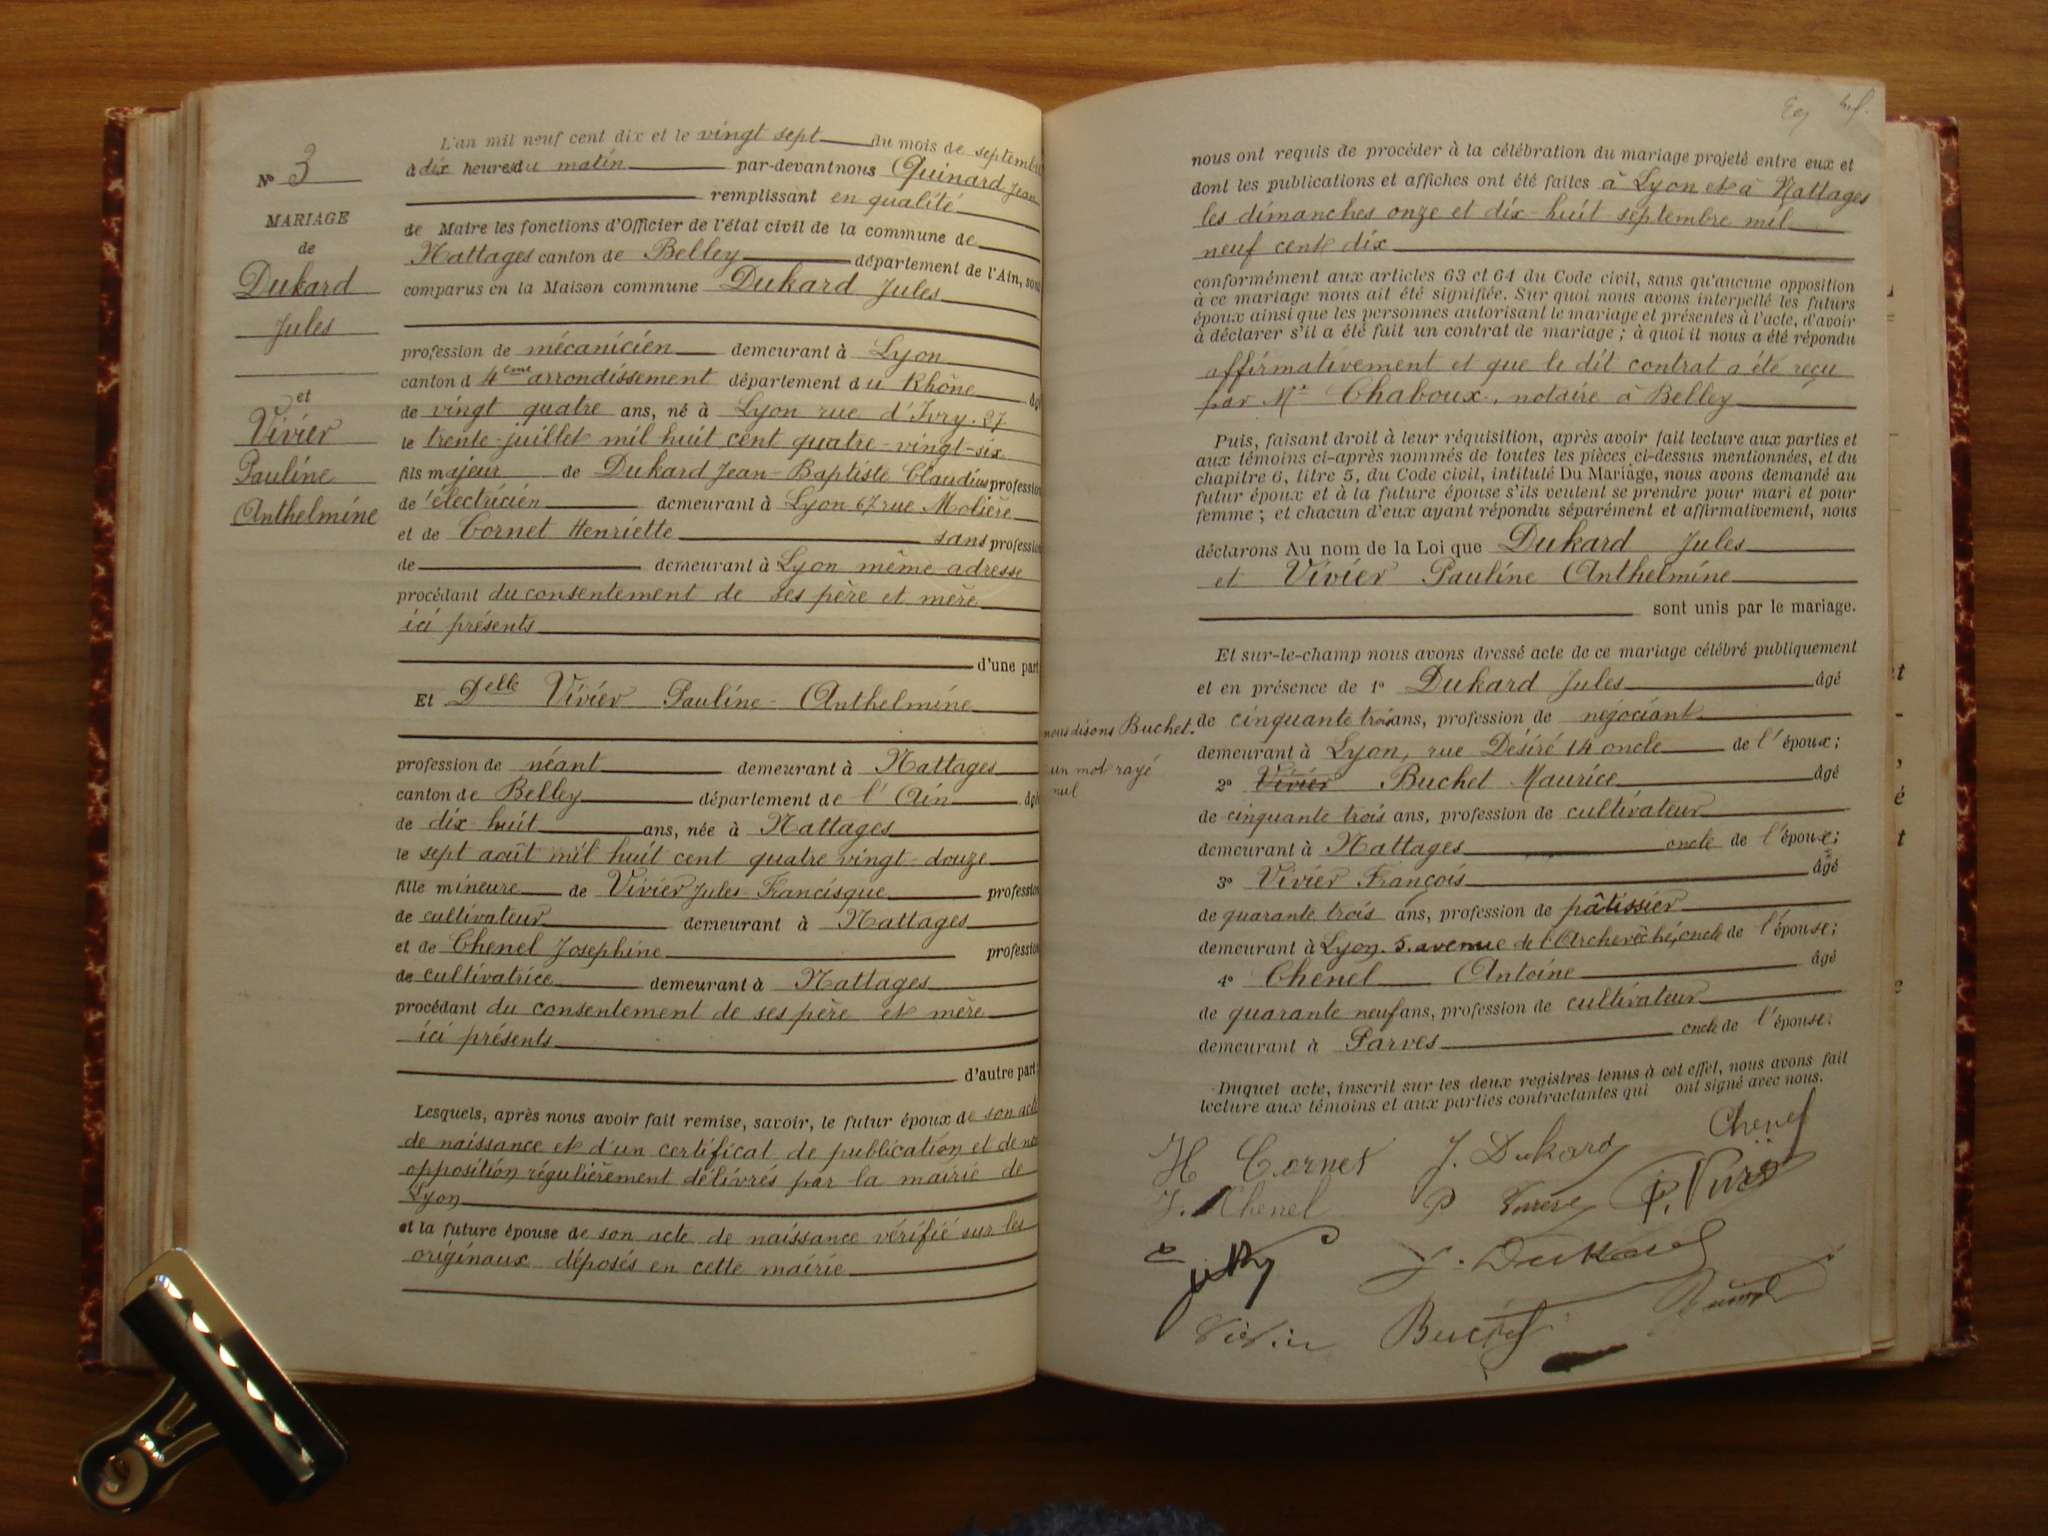 N° 3
MARIAGE
de
Dukard
Jules
et
Vivier
Pauline
Anthelmine
L'an mil neuf cent dix et le vingt sept du mois de septembre
à dix heures du matin par-devant nous Quinard Jean
remplissant en qualité
de Maire les fonctions d'Officier de l'état civil de la commune de
Nattages canton de Belley département de l'Ain, sont
comparus en la Maison commune Dukard Jules
profession de mécanicien demeurant à Lyon
canton d 4eme arrondissement département du Rhône âgé
de vingt quatre ans, né à Lyon rue d'Ivry. 27
le trente juillet mil huit cent quatre-vingt-six
fils majeur de Dukard Jean-Baptiste Claudius profession
de électricien demeurant à Lyon 67 rue Molière
et de Cornet Henriette sans profession
de demeurant à Lyon même adresse
procédant du consentement de ses père et mère
ici présents
d'une part
Et Delle Vivier Pauline-Anthelmine
profession de néant demeurant à Nattages
canton de Belley département de l'Ain âgé
de dix huit ans, née à Nattages
le sept août mil huit cent quatre vingt-douze
fille mineure de Vivier Jules-Francisque profession
de cultivateur demeurant à Nattages
et de Chenel Josephine profession
de cultivatrice demeurant à Nattages
procédant du consentement de ses père et mère
ici présents
d'autre part;
Lesquels, après nous avoir fait remise, savoir, le futur époux de son acte
de naissance et d'un certificat de publication et de non
opposition régulièrement délivrés par la mairie de
Lyon
et la future épouse de son acte de naissance vérifié sur les
originaux déposés en cette mairie
nous ont requis de procéder à la célébration du mariage projeté entre eux et
dont les publications et affiches ont été faites à Lyon et à Nattages
les dimanches onze et dix-huit septembre mil
neuf cent dix
conformément aux articles 63 et 64 du Code civil, sans qu'aucune opposition
à ce mariage nous ait été signifiée. Sur quoi nous avons interpellé les futurs
époux ainsi que les personnes autorisant le mariage et présentes à l'acte, d'avoir
à déclarer s'il a été fait un contrat de mariage; à quoi il nous a été répondu
affirmativement et que le dit contrat a été reçu
par Me Chaboux, notaire à Belley
Puis, faisant droit à leur réquisition, après avoir fait lecture aux parties et
aux témoins ci-après nommés de toutes les pièces ci-dessus mentionnées, et du
chapitre 6, titre 5, du Code civil, intitulé Du Mariage, nous avons demandé au
futur époux et à la future épouse s'ils veulent se prendre pour mari et pour
femme; et chacun d'eux ayant répondu séparément et affirmativement, nous
déclarons Au nom de la Loi que Dukard Jules
et Vivier Pauline Anthelmine
sont unis par le mariage.
Et sur-le-champ nous avons dressé acte de ce mariage célébré publiquement
et en présence de 1° Dukard Jules âgé
de cinquante trois ans, profession de négociant
demeurant à Lyon, rue Désiré 14 oncle de l'époux;
nous disons Buchet.
un mot rayé
nul
2° Vivier Buchet Maurice âgé
de cinquante trois ans, profession de cultivateur
demeurant à Nattages oncle de l'épouse;
3° Vivier François âgé
de quarante trois ans, profession de pâtissier
demeurant à Lyon. 5. avenue de l'Archevêché, oncle de l'épouse;
4° Chenel Antoine âgé
de quarante neuf ans, profession de cultivateur
demeurant à Parves oncle de l'épouse.
Duquel acte, inscrit sur les deux registres tenus à cet effet, nous avons fait
lecture aux témoins et aux parties contractantes qui ont signé avec nous.
H Cornet J. Dukard Chenel
J. Chenel P Vivier
J. Dukard
Vivier Buchet